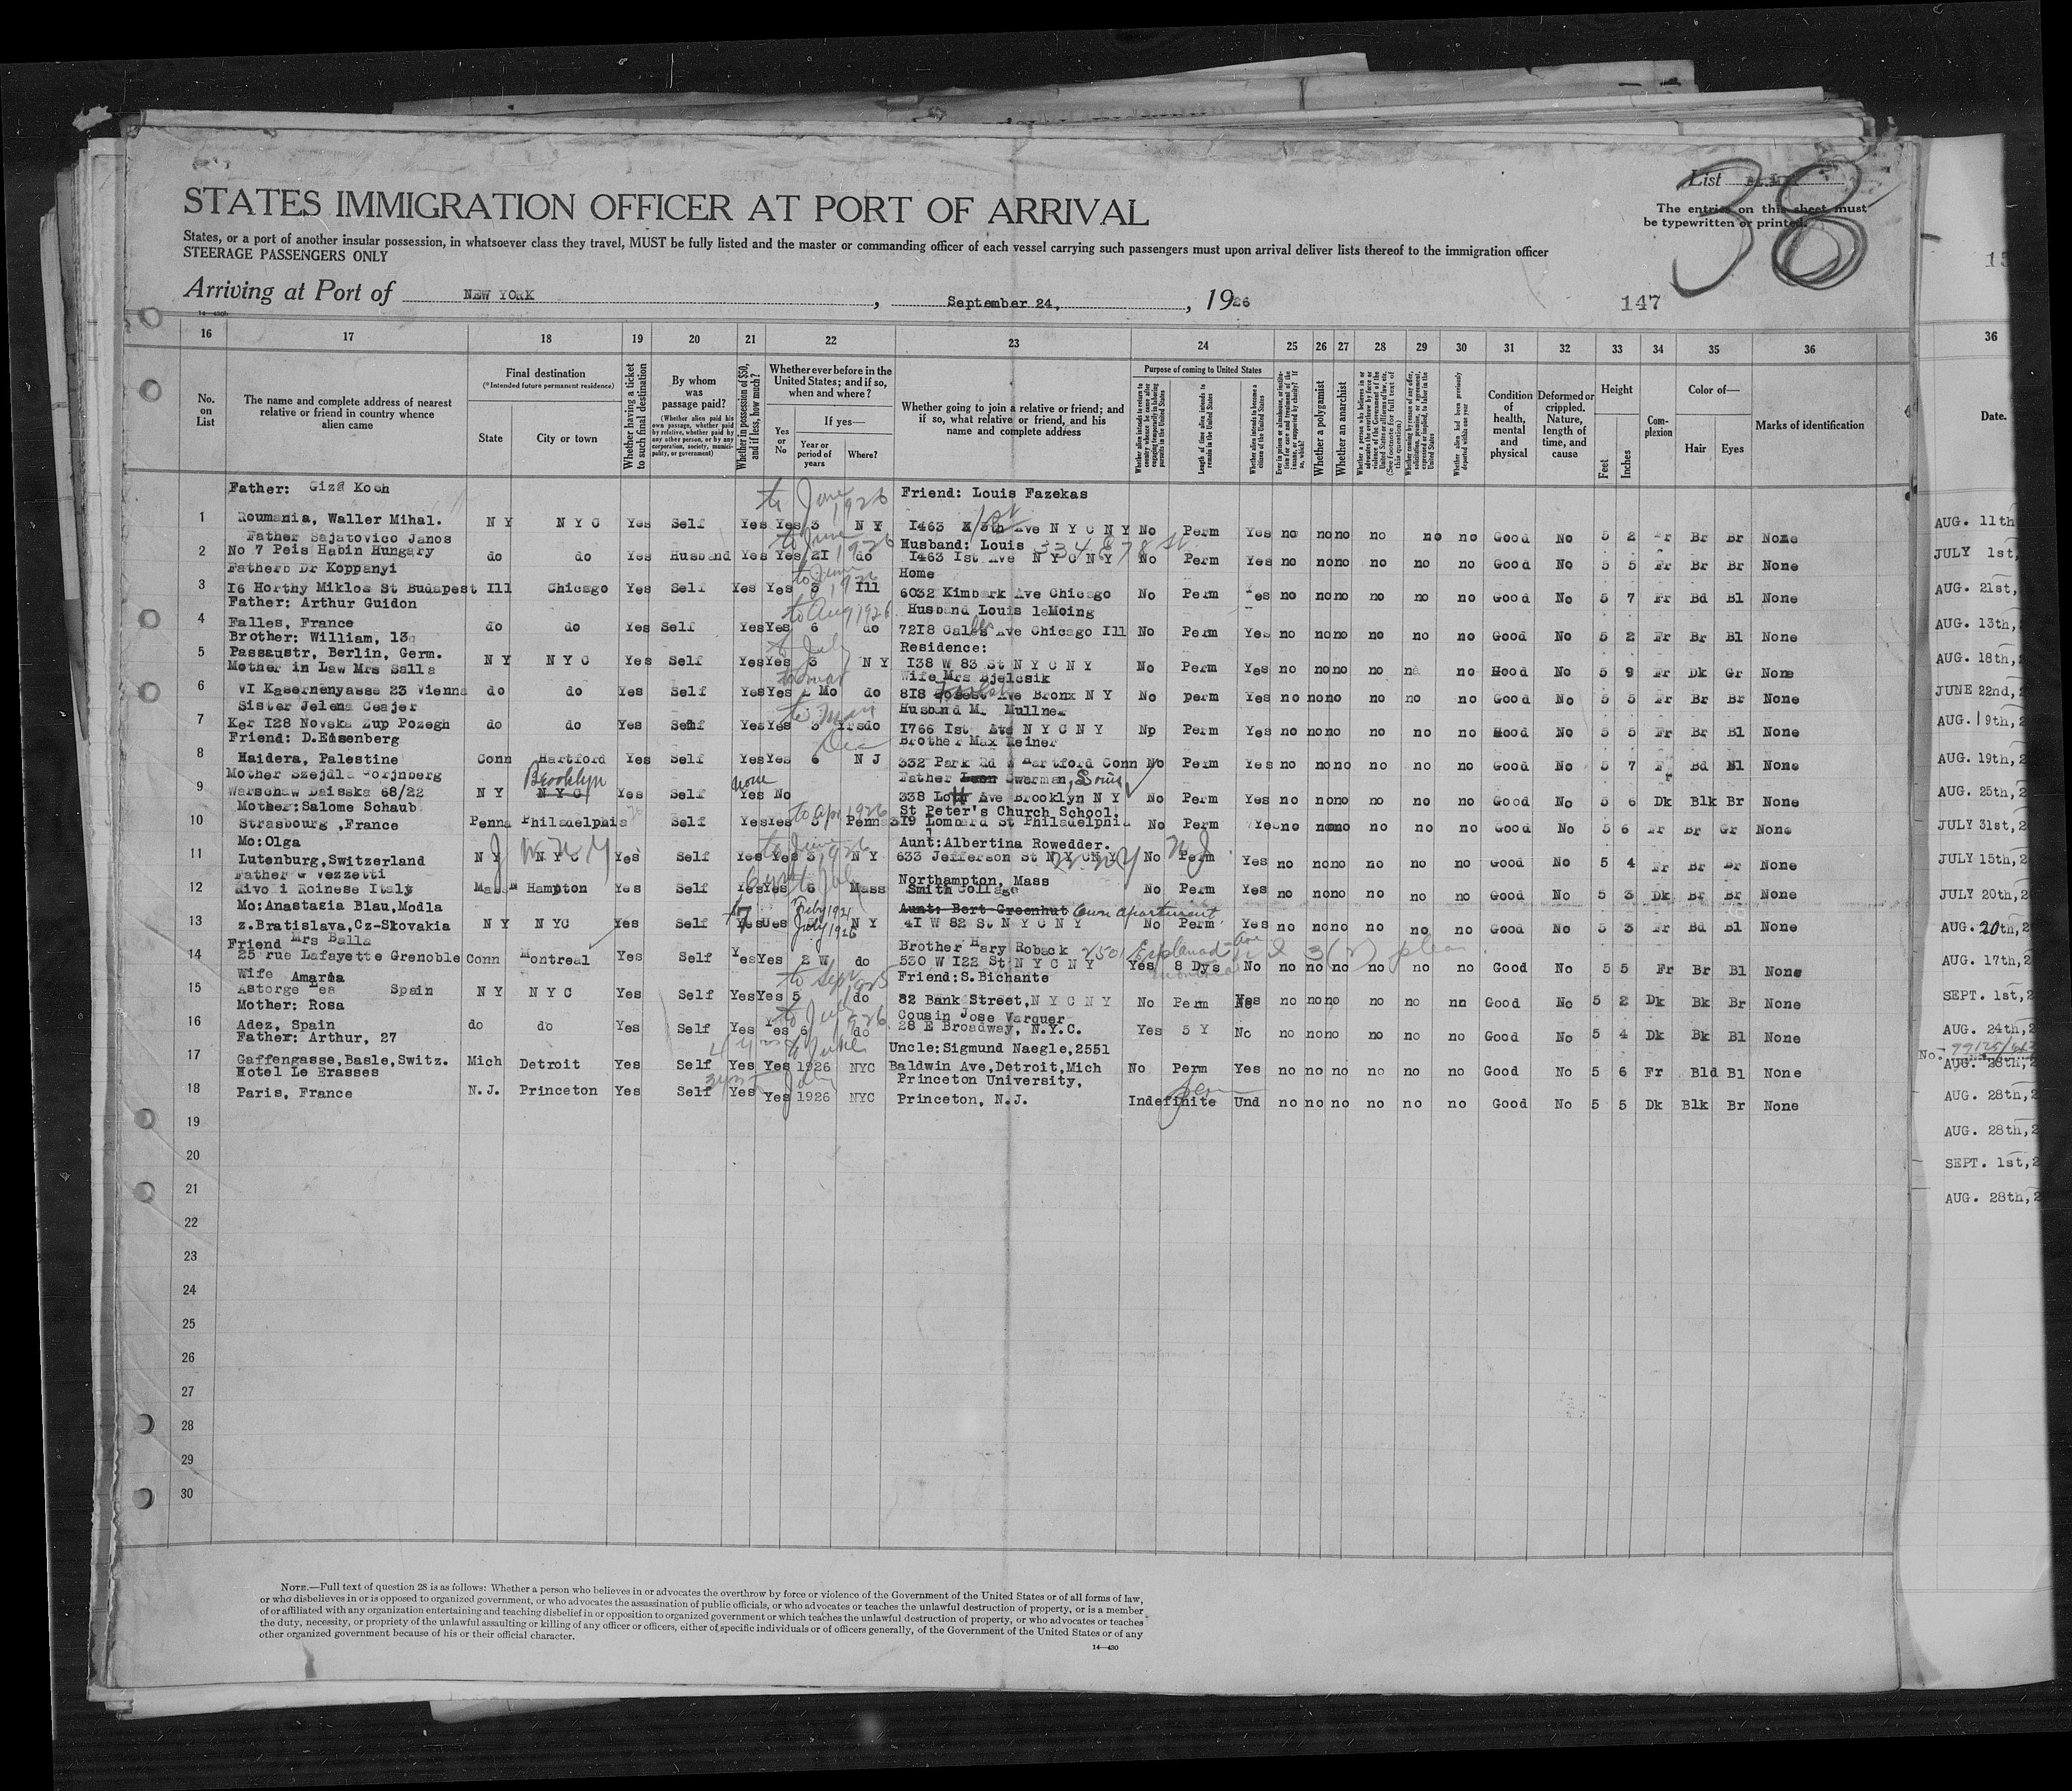 List
38
The entries on this sheet must
be typewritten or printed.
STATES IMMIGRATION OFFICER AT PORT OF ARRIVAL
States, or a port of another insular possession, in whatsoever class they travel, MUST be fully listed and the master or commanding officer of each vessel carrying such passengers must upon arrival deliver lists thereof to the immigration officer
STEERAGE PASSENGERS ONLY
Arriving at Port of NEW YORK, September 24, 1926
147
14—430b
16 17 18 19 20 21 22 23 24 25 26 27 28 29 30 31 32 33 34 35 36
No. on List
The name and complete address of nearest relative or friend in country whence alien came
Final destination
(*Intended future permanent residence)
State City or town
Whether having a ticket to such final destination
By whom was passage paid?
(Whether alien paid his own passage, whether paid by relative, whether paid by any other person, or by any corporation, society, municipality, or government)
Whether in possession of $50, and if less, how much?
Whether ever before in the United States; and if so, when and where?
Yes or No
If yes—
Year or period of years
Where?
Whether going to join a relative or friend; and if so, what relative or friend, and his name and complete address
Purpose of coming to United States
Length of time alien intends to remain in the United States
Whether alien intends to become a citizen of the United States
Whether a polygamist
Whether an anarchist
Condition of health, mental and physical
Deformed or crippled. Nature, length of time, and cause
Height
Feet Inches
Complexion
Color of—
Hair Eyes
Marks of identification
Father: Giza Koch Friend: Louis Fazekas
to June 1926
1 Roumania, Waller Mihal. N Y N Y C Yes Self Yes Yes 3 N Y 1463 Ave N Y C N Y No Perm Yes no no no no no no Good No 5 2 Fr Br Br None
Father Sajatovico Janos Husband: Louis 334 E 78 St
to June 1926
2 No 7 Peis Habin Hungary do do Yes Husband Yes Yes 21 do 1463 Ist Ave N Y C N Y No Perm Yes no no no no no no Good No 5 5 Fr Br Br None
Fathero Dr Koppanyi Home
to June 1926
3 16 Horthy Miklos St Budapest Ill Chicago Yes Self Yes Yes 3 Ill 6032 Kimbark Ave Chicago No Perm Yes no no no no no no Good No 5 7 Fr Bd Bl None
Father: Arthur Guidon Husband Louis leMoing
to Aug 1926
4 Falles, France do do Yes Self Yes Yes 6 do 7218 Ave Chicago Ill No Perm Yes no no no no no no Good No 5 2 Fr Br Bl None
Brother: William, 13 Residence:
to July
5 Passaustr, Berlin, Germ. N Y N Y C Yes Self Yes Yes 3 N Y 138 W 83 St N Y C N Y No Perm Yes no no no no no no Good No 5 9 Fr Dk Gr None
Mother in Law Mrs Salla Wife Mrs Bjelcsik
6 VI Kasernenyasse 23 Vienna do do Yes Self Yes Yes Mo do 818 Ave Bronx N Y No perm Yes no no no no no no Good No 5 5 Fr Br Br None
Sister Jelena Ceajer Husband M. Mullner
7 Ker 128 Novska Zup Pozegh do do Yes Self Yes Yes 3 Yrs do 1766 Ist Ave N Y C N Y No Perm Yes no no no no no no Good No 5 5 Fr Br Bl None
Friend: D.Eisenberg Brother Max Reiner
Dec
8 Haidera, Palestine Conn Hartford Yes Self Yes Yes 6 N J 332 Park Rd W Hartford Conn No Perm Yes no no no no no no Good No 5 7 Fr Bd Bl None
Mother Szejdla Brooklyn none Father Swerman, Louis
9 Warschaw Daisska 68/22 N Y N Y C Yes Self Yes No 338 Lott Ave Brooklyn N Y No Perm Yes no no no no no no Good No 5 6 Dk Blk Br None
Mother:Salome Schaub St Peter's Church School,
to Apr 1926
10 Strasbourg ,France Penna Philadelphia Self Yes Yes 3 Penn 319 Lombard St Philadelphia No Perm Yes no no no no no no Good No 5 6 Fr Br Gr None
Mo:Olga Aunt:Albertina Rowedder.
11 Lutenburg,Switzerland N Y N Y C Yes Self Yes Yes 3 N Y 633 Jefferson St N Y C N Y No Perm Yes no no no no no no Good No 5 4 Fr Br Br None
Father G Vezzetti Northampton, Mass
12 Rivoli Roinese Italy Mass Hampton Yes Self Yes Yes 6 Mass Smith College No Perm Yes no no no no no no Good No 5 3 Dk Br Br None
Mo:Anastazia Blau,Modla Feby 1921 Aunt: Bert Greenhut Own apartment
13 z.Bratislava,Cz-Slovakia N Y NYC Yes Self Yes Yes July 1926 N Y 41 W 82 St N Y C N Y No Perm Yes no no no no no no Good No 5 3 Fr Bd Bl None
Friend Mrs Balla Brother Hary Roback 2501 Esplanade Ave
14 25 rue Lafayette Grenoble Conn Montreal Yes Self Yes Yes 2 W do 530 W 122 St N Y C N Y Yes 8 Dys No no no no no no no Good No 5 5 Fr Br Bl None
Wife Amarea Friend:S.Bichante
to Sep 1925
15 Astorge Spain N Y N Y C Yes Self Yes Yes 5 do 82 Bank Street,N Y C N Y No Perm Yes no no no no no no Good No 5 2 Dk Bk Br None
Mother: Rosa Cousin Jose Varquer
to July 1926
16 Adez, Spain do do Yes Self Yes Yes 6 do 28 E Broadway, N.Y.C. Yes 5 Y No no no no no no no Good No 5 4 Dk Bk Bl None
Father: Arthur, 27 Uncle:Sigmund Naegle,2551
17 Gaffengasse,Basle,Switz. Mich Detroit Yes Self Yes Yes 1926 NYC Baldwin Ave,Detroit,Mich No Perm Yes no no no no no no Good No 5 6 Fr Bld Bl None
Hotel Le Erasses Princeton University,
18 Paris, France N.J. Princeton Yes Self Yes Yes 1926 NYC Princeton, N.J. Indefinite Und no no no no no no Good No 5 5 Dk Blk Br None
19
20
21
22
23
24
25
26
27
28
29
30
NOTE.—Full text of question 28 is as follows: Whether a person who believes in or advocates the overthrow by force or violence of the Government of the United States or of all forms of law,
or who disbelieves in or is opposed to organized government, or who advocates the assassination of public officials, or who advocates or teaches the unlawful destruction of property, or is a member
of or affiliated with any organization entertaining and teaching disbelief in or opposition to organized government or which teaches the unlawful destruction of property, or who advocates or teaches
the duty, necessity, or propriety of the unlawful assaulting or killing of any officer or officers, either of specific individuals or of officers generally, of the Government of the United States or of any
other organized government because of his or their official character.
14—430
15
36
Date.
AUG. 11th
JULY 1st,
AUG. 21st,
AUG. 13th,
AUG. 18th,
JUNE 22nd,
AUG. 19th,
AUG. 19th,
AUG. 25th,
JULY 31st,
JULY 15th,
JULY 20th,
AUG. 20th,
AUG. 17th,
SEPT. 1st,
AUG. 24th,
AUG. 28th,
AUG. 28th,
AUG. 28th,
SEPT. 1st,
AUG. 28th,